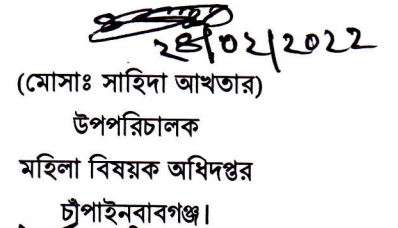 ২৪/০২/২০২২
(মোসাঃ সাহিদা আখতার)
উপপরিচালক
মহিলা বিষয়ক অধিদপ্তর
চাঁপাইনবাবগঞ্জ।